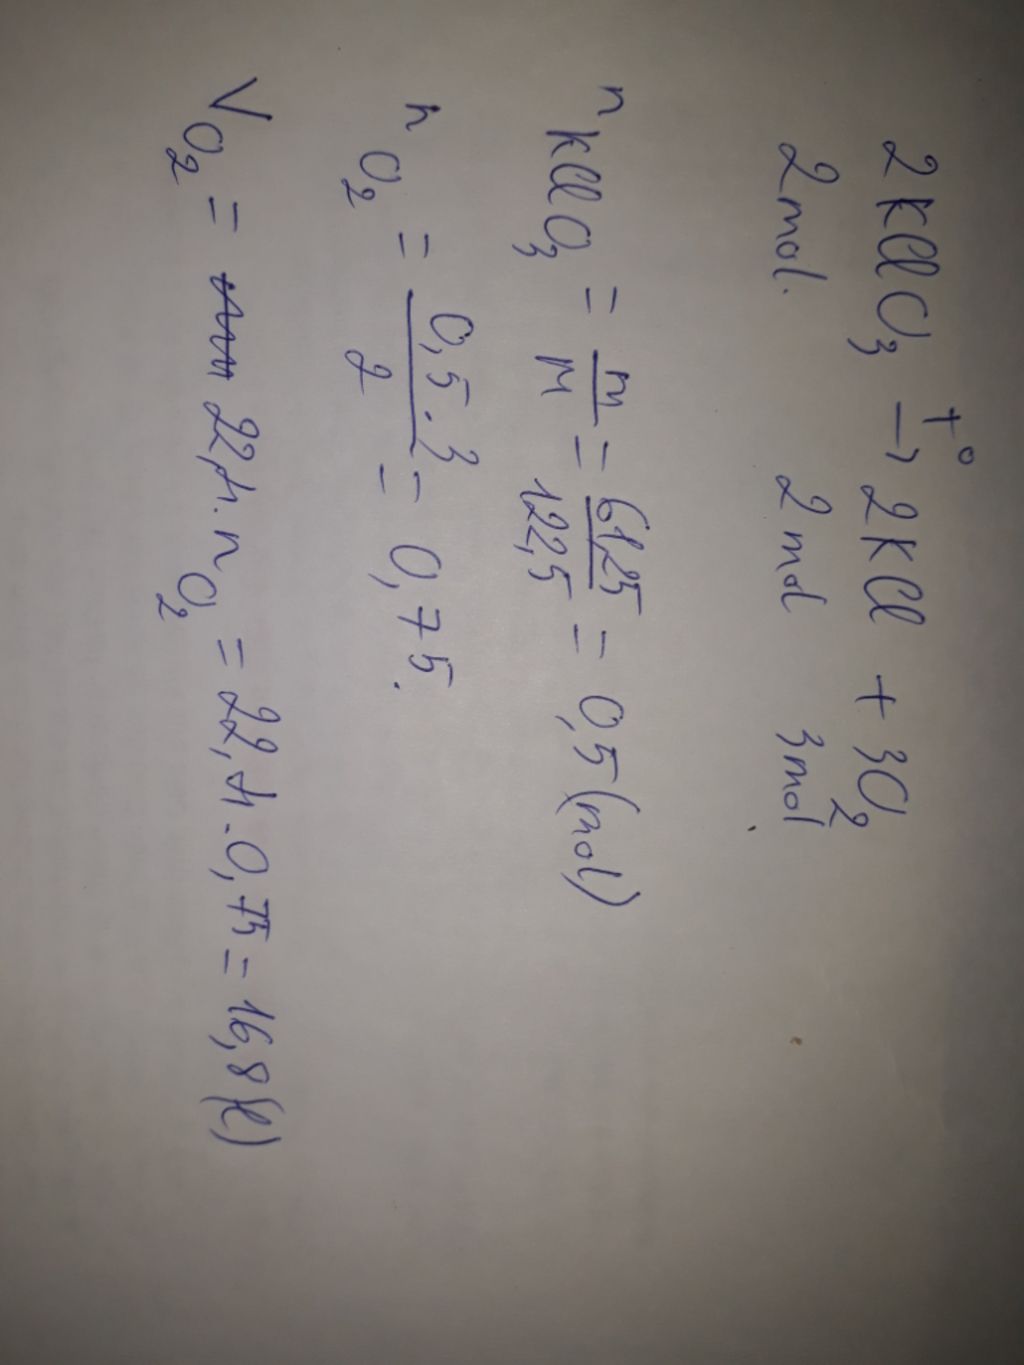 2KClO₃ →t° 2KCl + 3O₂
2mol. 2mol 3mol
nKClO₃ = m/M = 61,25/122,5 = 0,5 (mol)
nO₂ = 0,5.3/2 = 0,75.
VO₂ = 22,4.nO₂ = 22,4.0,75 = 16,8 (l)